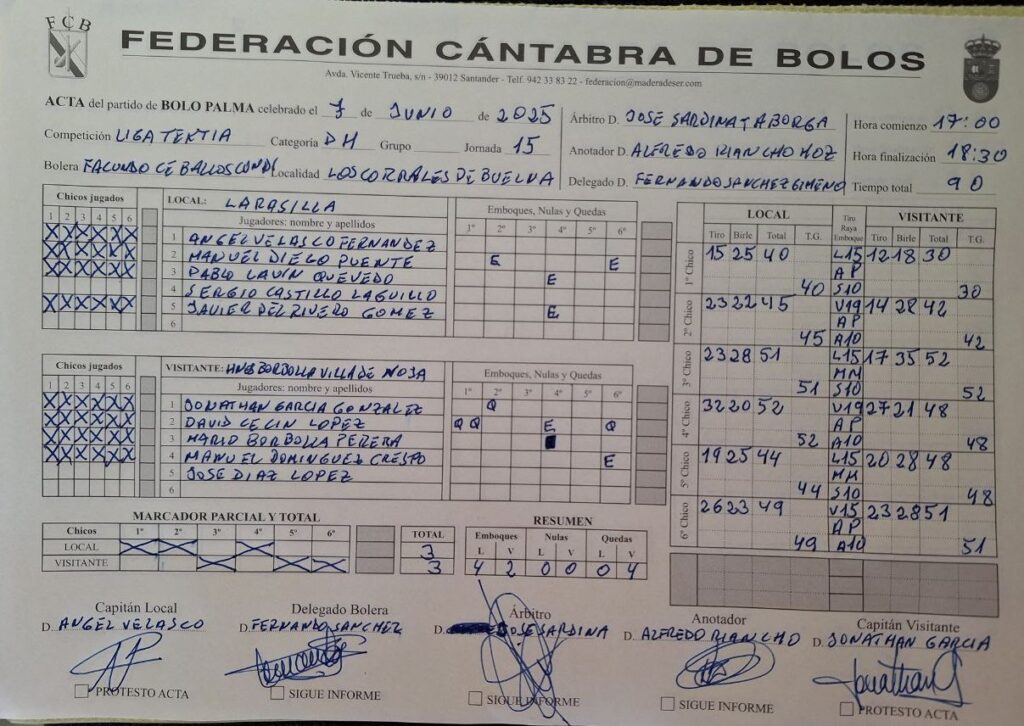 FCB
FEDERACIÓN CÁNTABRA DE BOLOS
Avda. Vicente Trueba, s/n - 39012 Santander - Telf. 942 33 83 22 - federacion@maderadeser.com
ACTA del partido de BOLO PALMA celebrado el 7 de JUNIO de 2025
Competición LIGA TEXTIA Categoría DH Grupo Jornada 15
Bolera FACUNDO CEBALLOS CONDE Localidad LOS CORRALES DE BUELNA
Árbitro D. JOSE SARDINA TABORGA
Anotador D. ALFREDO RIANCHO HOZ
Delegado D. FERNANDO SANCHEZ GIMENO
Hora comienzo 17:00
Hora finalización 18:30
Tiempo total 90
Chicos jugados
1 2 3 4 5 6
X X X X X X
X X X X X X
X X X X X X
X X X X X X
LOCAL: LARASILLA
Jugadores: nombre y apellidos
1 ANGEL VELASCO FERNANDEZ
2 MANUEL DIEGO PUENTE
3 PABLO LAVIN QUEVEDO
4 SERGIO CASTILLO LAGUILLO
5 JAVIER DEL RIVERO GOMEZ
6
Emboques, Nulas y Quedas
1º 2º 3º 4º 5º 6º
E E
E
E
Chicos jugados
1 2 3 4 5 6
X X X X X X
X X X X X X
X X X X X X
X X X X X X
VISITANTE: HNB BORBOLLA VILLA DE NOJA
Jugadores: nombre y apellidos
1 JONATHAN GARCIA GONZALEZ
2 DAVID CECIN LOPEZ
3 MARIO BORBOLLA PERERA
4 MANUEL DOMINGUEZ CRESPO
5 JOSE DIAZ LOPEZ
6
Emboques, Nulas y Quedas
1º 2º 3º 4º 5º 6º
Q
Q Q E Q
E
LOCAL Tiro Raya Emboque VISITANTE
Tiro Birle Total T.G. Tiro Birle Total T.G.
1º Chico 15 25 40 L15 12 18 30
AP
40 S10 30
2º Chico 23 22 45 V19 14 28 42
AP
45 A10 42
3º Chico 23 28 51 L15 17 35 52
MM
51 S10 52
4º Chico 32 20 52 V19 27 21 48
AP
52 A10 48
5º Chico 19 25 44 L15 20 28 48
MM
44 S10 48
6º Chico 26 23 49 V15 23 28 51
AP
49 A10 51
MARCADOR PARCIAL Y TOTAL
Chicos 1º 2º 3º 4º 5º 6º TOTAL
LOCAL X X X 3
VISITANTE X X X 3
RESUMEN
Emboques Nulas Quedas
L V L V L V
4 2 0 0 0 4
Capitán Local
D. ANGEL VELASCO
PROTESTO ACTA
Delegado Bolera
D. FERNANDO SANCHEZ
SIGUE INFORME
Árbitro
D. JOSE SARDINA
SIGUE INFORME
Anotador
D. ALFREDO RIANCHO
SIGUE INFORME
Capitán Visitante
D. JONATHAN GARCIA
Jonathan G
PROTESTO ACTA